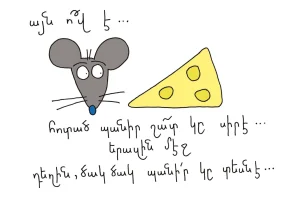 այն ո՞վ է ...
հոտած պանիր շա՜տ կը սիրէ ...
երազին մէջ
դեղին, ծակ ծակ պանի՛ր կը տեսնէ ...